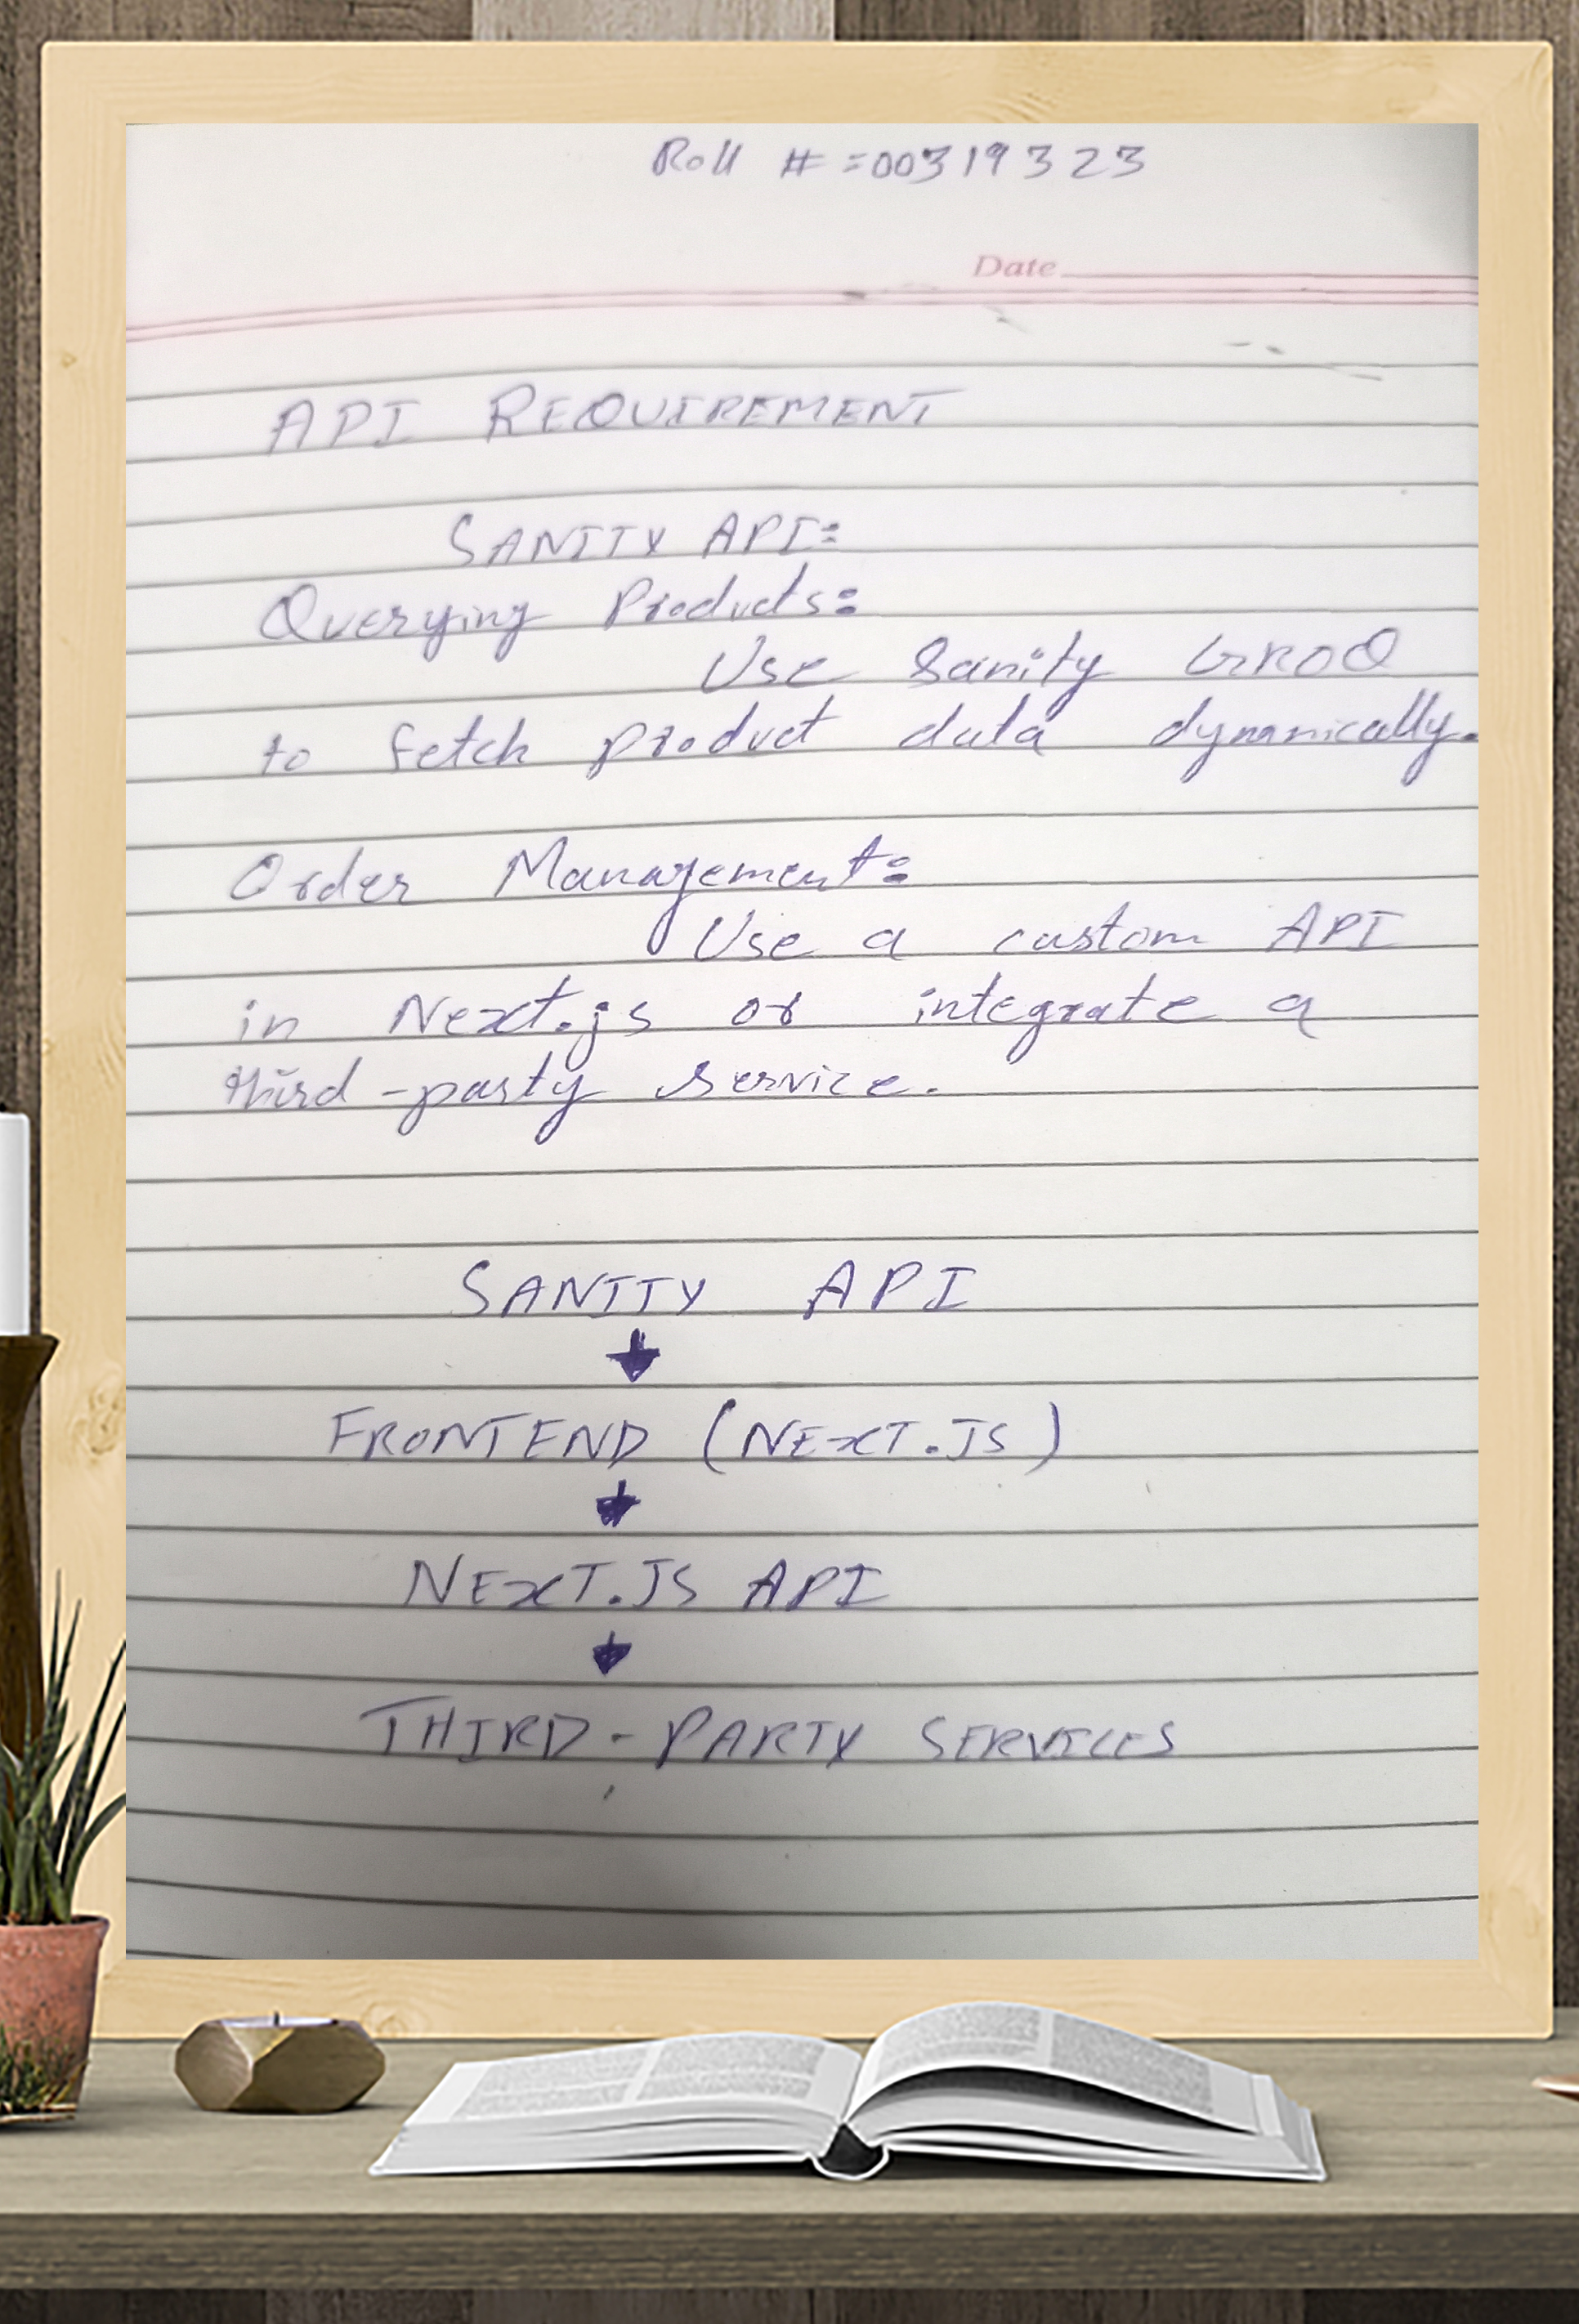 Roll # =00319323
Date
API REQUIREMENT
SANITY API:
Querying Products:
Use Sanity GROQ
to fetch product data dynamically.
Order Management:
Use a custom API
in Next.js or integrate a
third-party service.
SANITY API
FRONTEND (NEXT.JS)
NEXT.JS API
THIRD-PARTY SERVICES